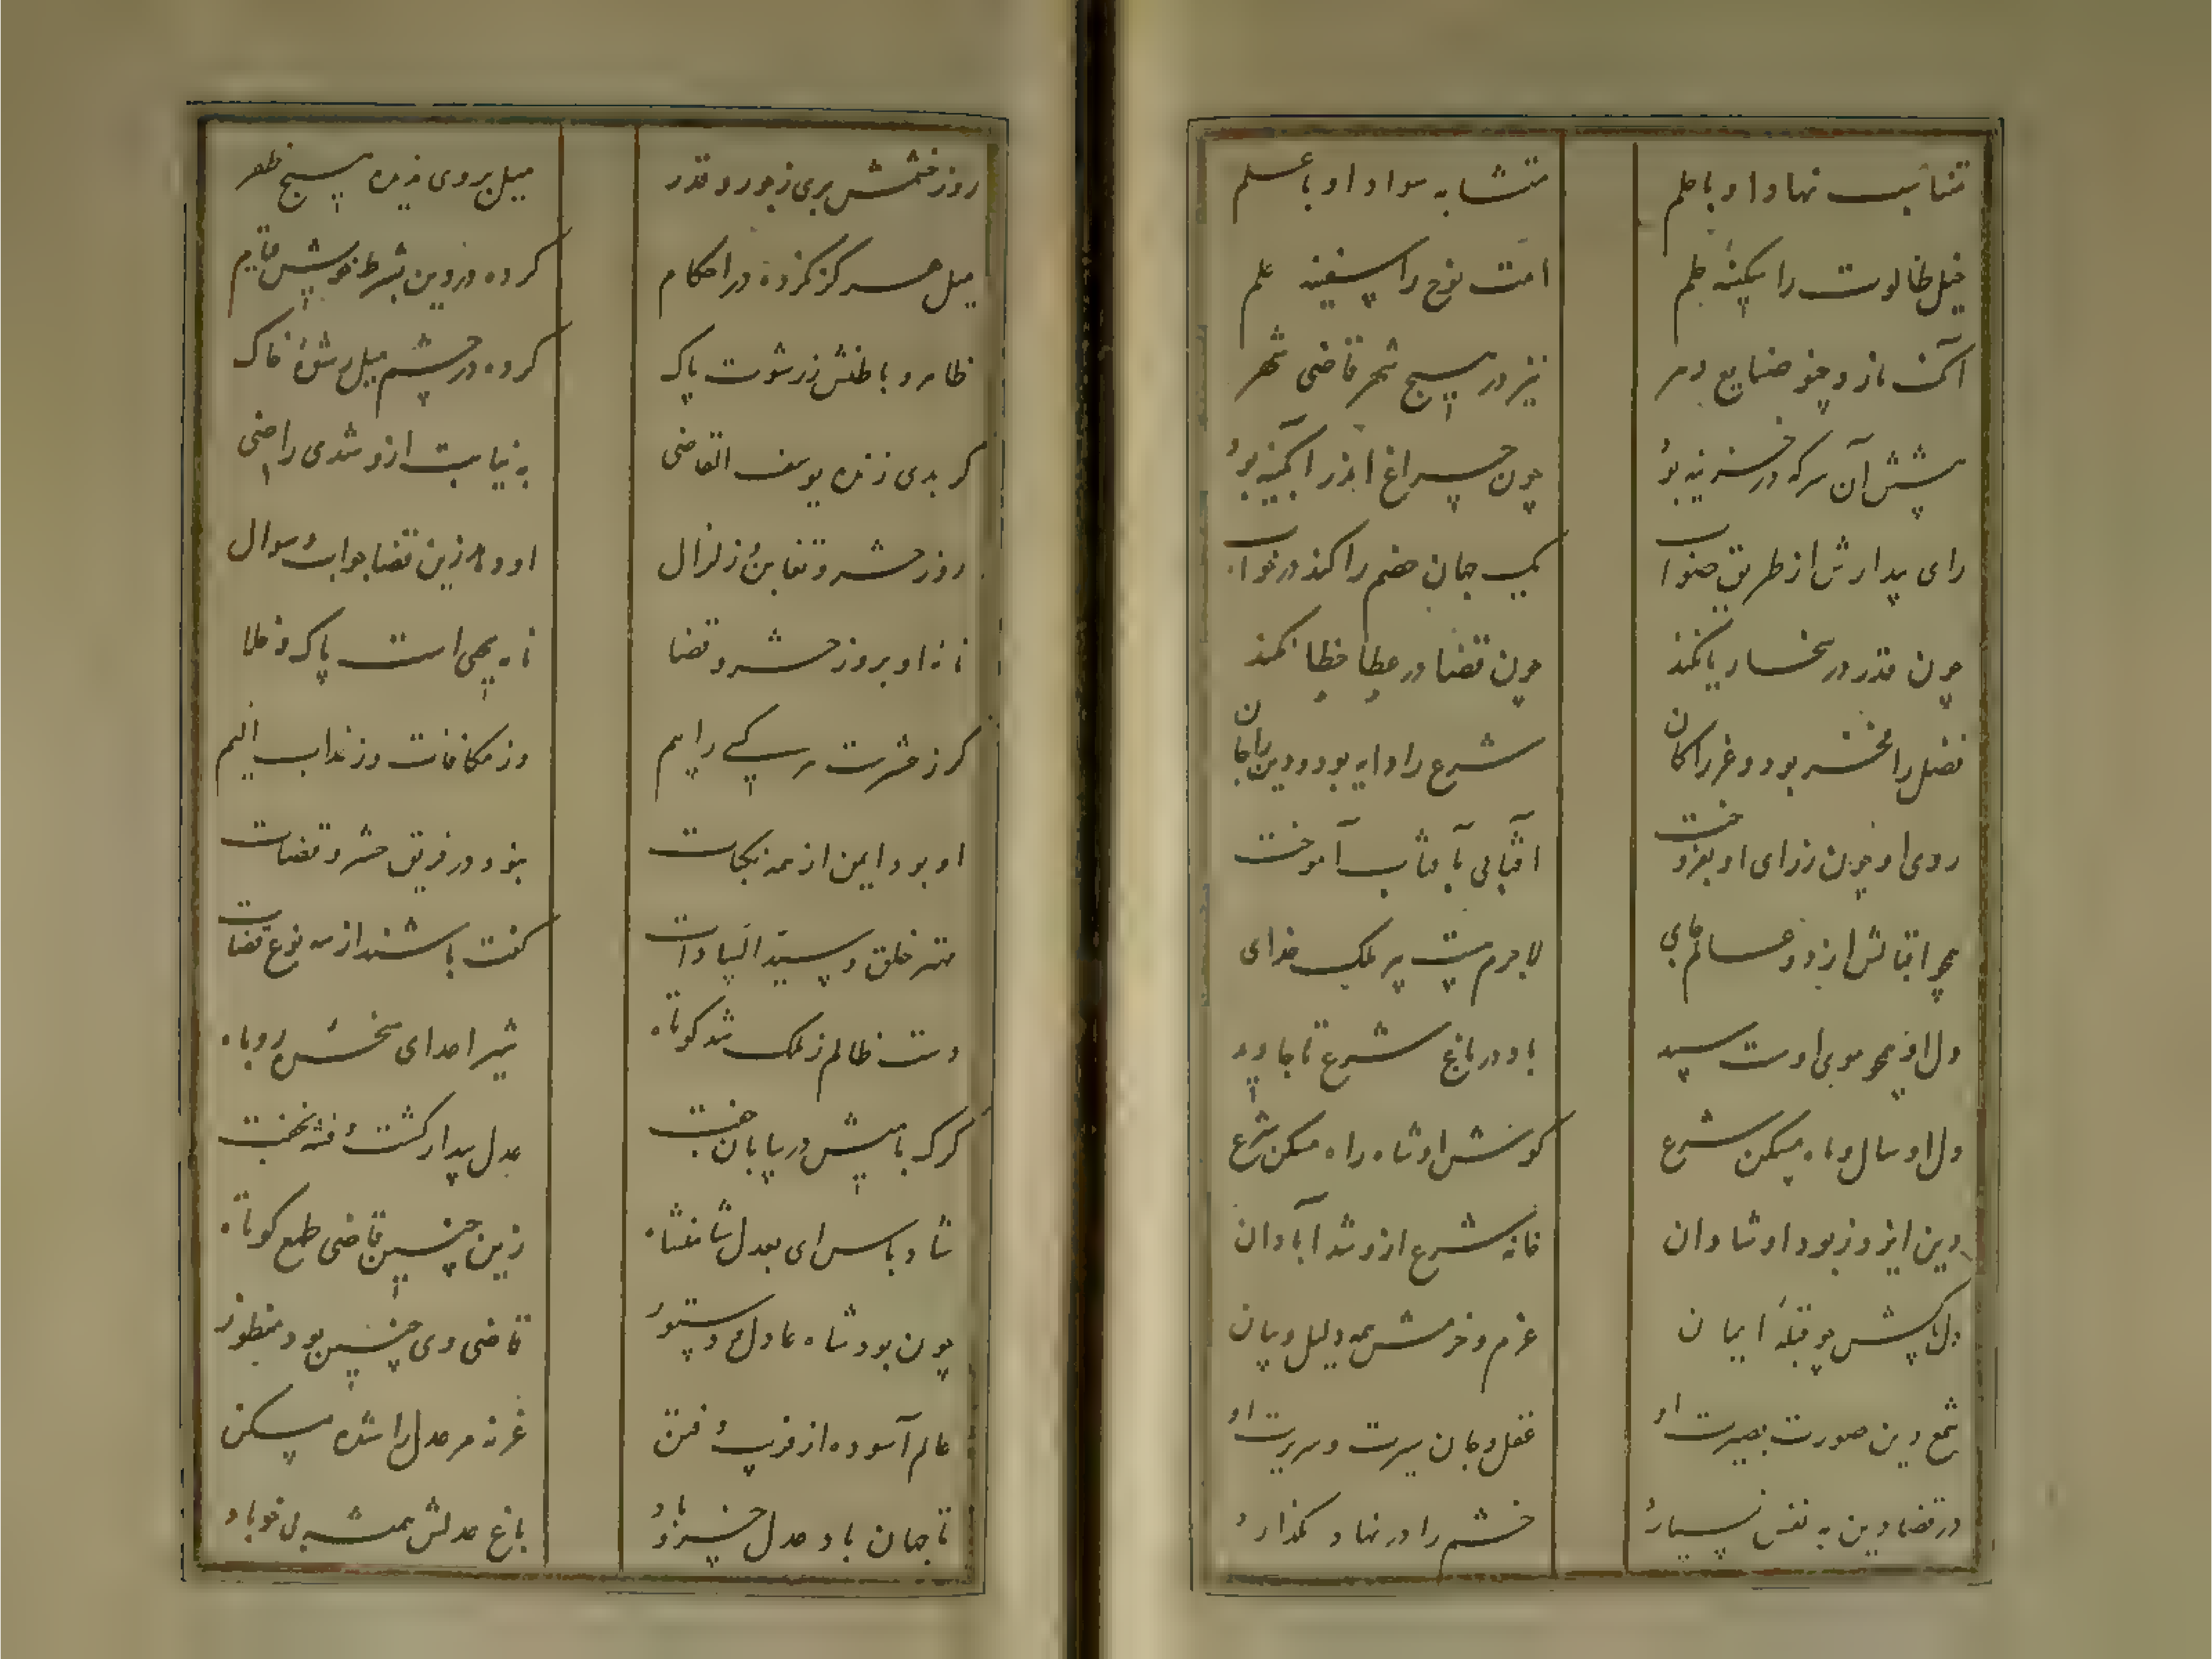 متناسب نهاد او با حلم
متشابه سواد او با علم
خیل طالوت را سکینهٔ حلم
امت نوح را سفینه علم
نیز در هیچ شهر قاضی شهر
چون چراغ اندر آبگینه بود
رای بیدارش از طریق صواب
یک جهان خصم را کند در خواب
چون قدر در سخا ریا نکند
چون قضا در عطا خطا نکند
فضل را مخبر بود و عز را کان
شرع را دایه بود و دین را جان
روی او چون ز رای او بفروخت
آفتابی بآفتاب آموخت
لاجرم هست بر ملک خدای
دل او همچو موی اوست سپید
باد در باغ شرع تا جاوید
دل او سال و ماه مسکن شرع
کوشش او شاه راه مسکن شرع
دین ایزد بود او شادان
خانه شرع ازو شد آبادان
دل پاکش چو قبلهٔ ایمان
عزم و حزمش همه دلیل و بیان
شمع دین صورت بصیرت او
عقل و جان سیرت و سریرت او
در قضا دین به نفس نسپارد
خشم را در نهاد نگذارد
روز خصمش بری ز بور و قدر
میل هرگز نکرده در احکام
کرده در دین بشرط خویش قیام
ظاهر و باطنش ز رشوت پاک
کرده در چشم میل رشوه خاک
گر بدی زنده یوسف القاضی
به نیابت ازو شدی راضی
روز حشر و تغابن و زلزال
او دهد زین قضا جواب سؤال
نه او بروز حشر و قضا
کر ز عشرت هر کسی را بیم
وز مکافات وز عذاب الیم
او بود ایمن از همه نکبات
نبود در فریق حشر و قضات
مهتر خلق و سید السادات
گفت باشند از سه نوع قضات
دست ظالم ز ملک شد کوتاه
شیر اعدای سخرهٔ روباه
گرگ با میش در بیابان خفت
عدل بیدار گشت و فتنه نخفت
شاد باش ای بعدل شاهنشاه
زین چنین قاضی طمع کوتاه
چون بود شاه عادل و دستور
قاضی وی چنین بود منظور
عالم آسوده از فریب و فتن
غزنه مر عدل را شده مسکن
تا جهان باد عدل خسرو باد
باغ عدلش همیشه بی خو باد